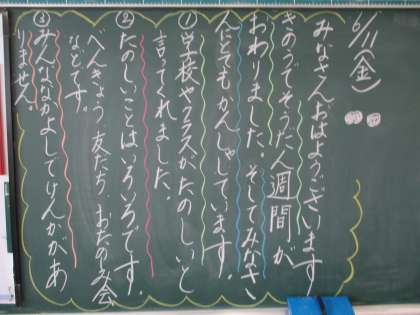 6/11(金)
みなさんおはようございます
きのうでそうだん週間が
おわりました。そしてみなさ
んとてもかんしゃしています。
①学校やクラスがたのしいと
言ってくれました。
②たのしいことはいろいろです。
べんきょう友だちおたのしみ会
などです。
③みんななかよしでけんかがあ
りません。